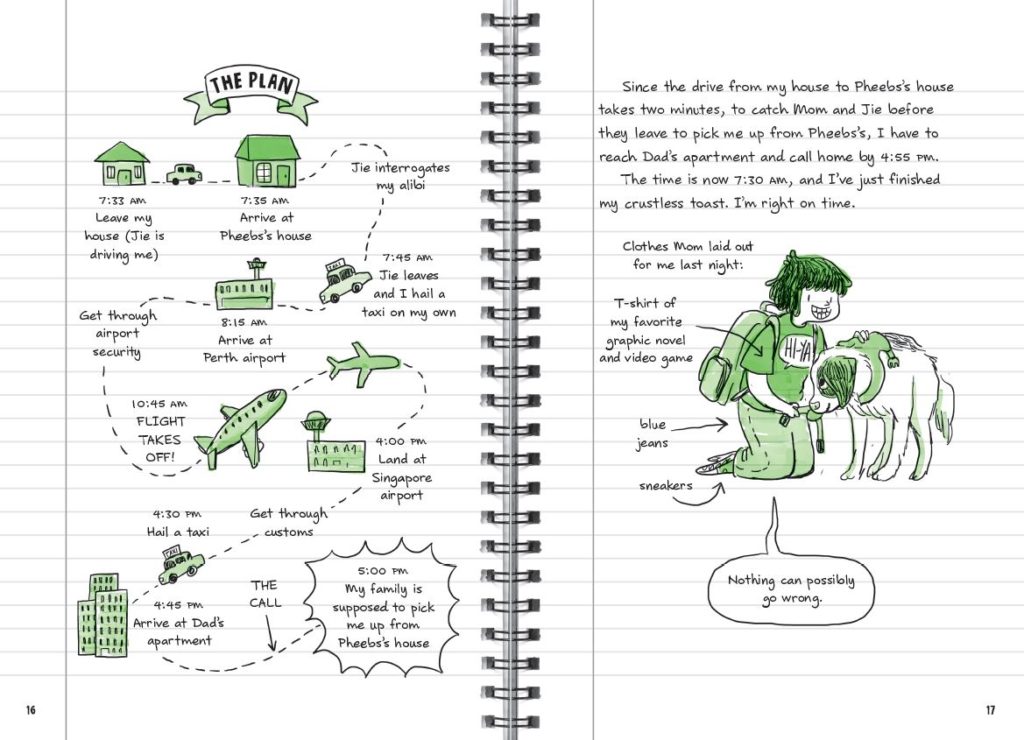 THE PLAN
7:33 AM
Leave my
house (Jie is
driving me)
7:35 AM
Arrive at
Pheebs's house
Jie interrogates
my alibi
7:45 AM
Jie leaves
and I hail a
taxi on my own
TAXI
8:15 AM
Arrive at
Perth airport
Get through
airport
security
10:45 AM
FLIGHT
TAKES
OFF!
4:00 PM
Land at
Singapore
airport
Get through
customs
4:30 PM
Hail a taxi
TAXI
4:45 PM
Arrive at Dad's
apartment
THE
CALL
5:00 PM
My family is
supposed to pick
me up from
Pheebs's house
16
Since the drive from my house to Pheebs's house
takes two minutes, to catch Mom and Jie before
they leave to pick me up from Pheebs's, I have to
reach Dad's apartment and call home by 4:55 PM.
The time is now 7:30 AM, and I've just finished
my crustless toast. I'm right on time.
Clothes Mom laid out
for me last night:
T-shirt of
my favorite
graphic novel
and video game
HI-YA!
blue
jeans
sneakers
Nothing can possibly
go wrong.
17